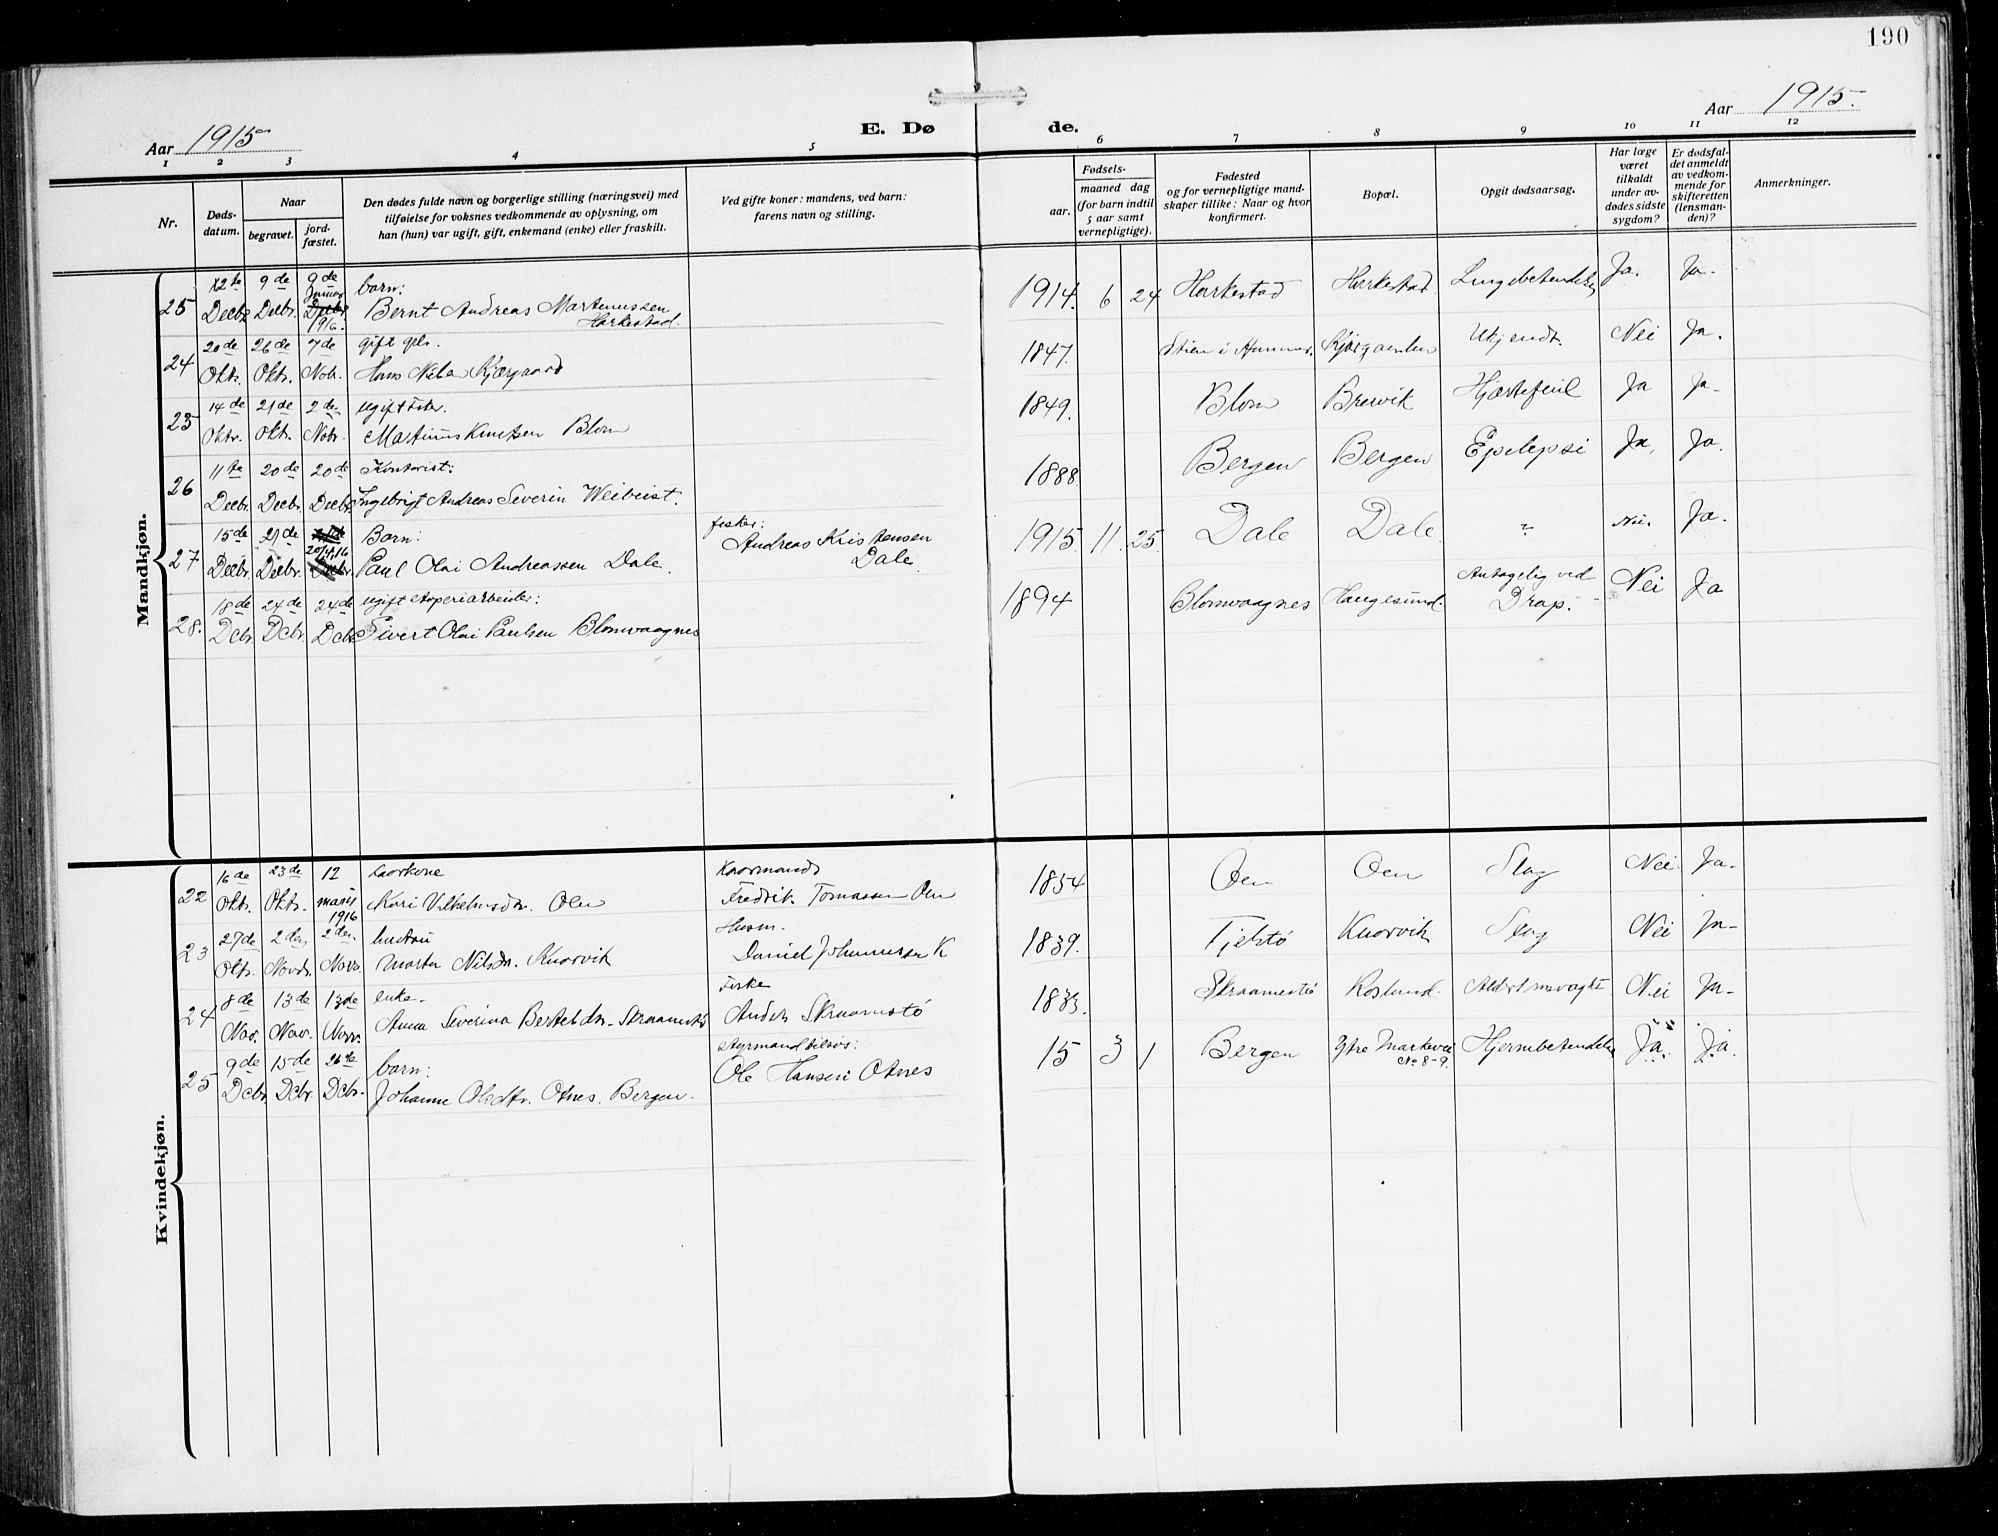 190
Aar 1915
E. Dø
de.
Aar 1915.
1 2 3 4 5 6 7 8 9 10 11 12
Nr.
Døds-
datum.
Naar
begravet.
jord-
fæstet.
Den dødes fulde navn og borgerlige stilling (næringsvei) med
tilføielse for voksnes vedkommende av oplysning, om
han (hun) var ugift, gift, enkemand (enke) eller fraskilt.
Ved gifte koner: mandens, ved barn:
farens navn og stilling.
Fødsels-
aar.
maaned dag
(for barn indtil
5 aar samt
vernepligtige).
Fødested
og for vernepligtige mand-
skaper tillike: Naar og hvor
konfirmert.
Bopæl.
Opgit dødsaarsag.
Har læge
været
tilkaldt
under av-
dødes sidste
sygdom?
Er dødsfal-
det anmeldt
av vedkom-
mende for
skifteretten
(lensman-
den)?
Anmerkninger.
Mandkjøn.
25 Decbr. 9de Decbr. 9de Januar 1916. barn:
Bernt Andreas Martinussen
Harkestad.
1914. 6 24 Harkestad Harkestad. Ja. Ja.
24 20de Oktr. 26de Oktr. 7de Nob. gift
Hans Kjærgaard
1847. Ukjendt. Nei Ja.
23 14de Oktr. 21de Okt. 2den Nobr. ugift
Martinus Knutsen Blom
1849. Blom Brewik Hjertefeil Ja Ja-
26 11te Decbr. 20de Decbr. 20de Decbr. Kontorist:
Ingebrigt Andreas Severin Weibeist.
1888. Bergen Bergen Epilepsi Ja, Ja.
27 15de Decbr. 21de Decbr. 20/1 16 Barn:
Paul Olai Andreassen Dale.
fisker:
Andreas Kristensen
Dale.
1915. 11. 25. Dale Dale. ? Nei. Ja.
28. 18de Dcbr. 24de Dcbr. 24de Dcbr. ugift arbeider:
Sivert Olai Paulsen Blomvaagnes
1894 Blomvaagnes Haugesund. Antagelig ved
Drap. Nei Ja
Kvindekjøn.
22 16de Oktr. 23de Oktr. 12 marts 1916 kaarkone
Kari Vilhelmsdtr. Oen
Kaarmand
Fredrik Tomassen Oen
1854 Oen Oen Slag Nei Ja.
23 27de Oktr. 2den Novbr. 2den Novr. hustru
Marta Nilsdtr. Knarvik
Husm.
Daniel Johannessen K
1839. Tjelstø Knarvik Slag Nei Ja-
24 8de Nov. 13de Nov. 13de Novr. enke.
Anna Severina Berteldtr. Skraamestø
Fisker
Anders Skraamestø
1833. Skraamestø Rosland. Nei Ja-
25 9de Dcbr 15de Dcbr. Dcbr. barn:
Johanne Olsdtr. Otnes. Bergen.
Ole Hansen Otnes
15 3 1 Bergen Ytre Markevei
No 8-9. Hjernebetendelse Ja. Ja.